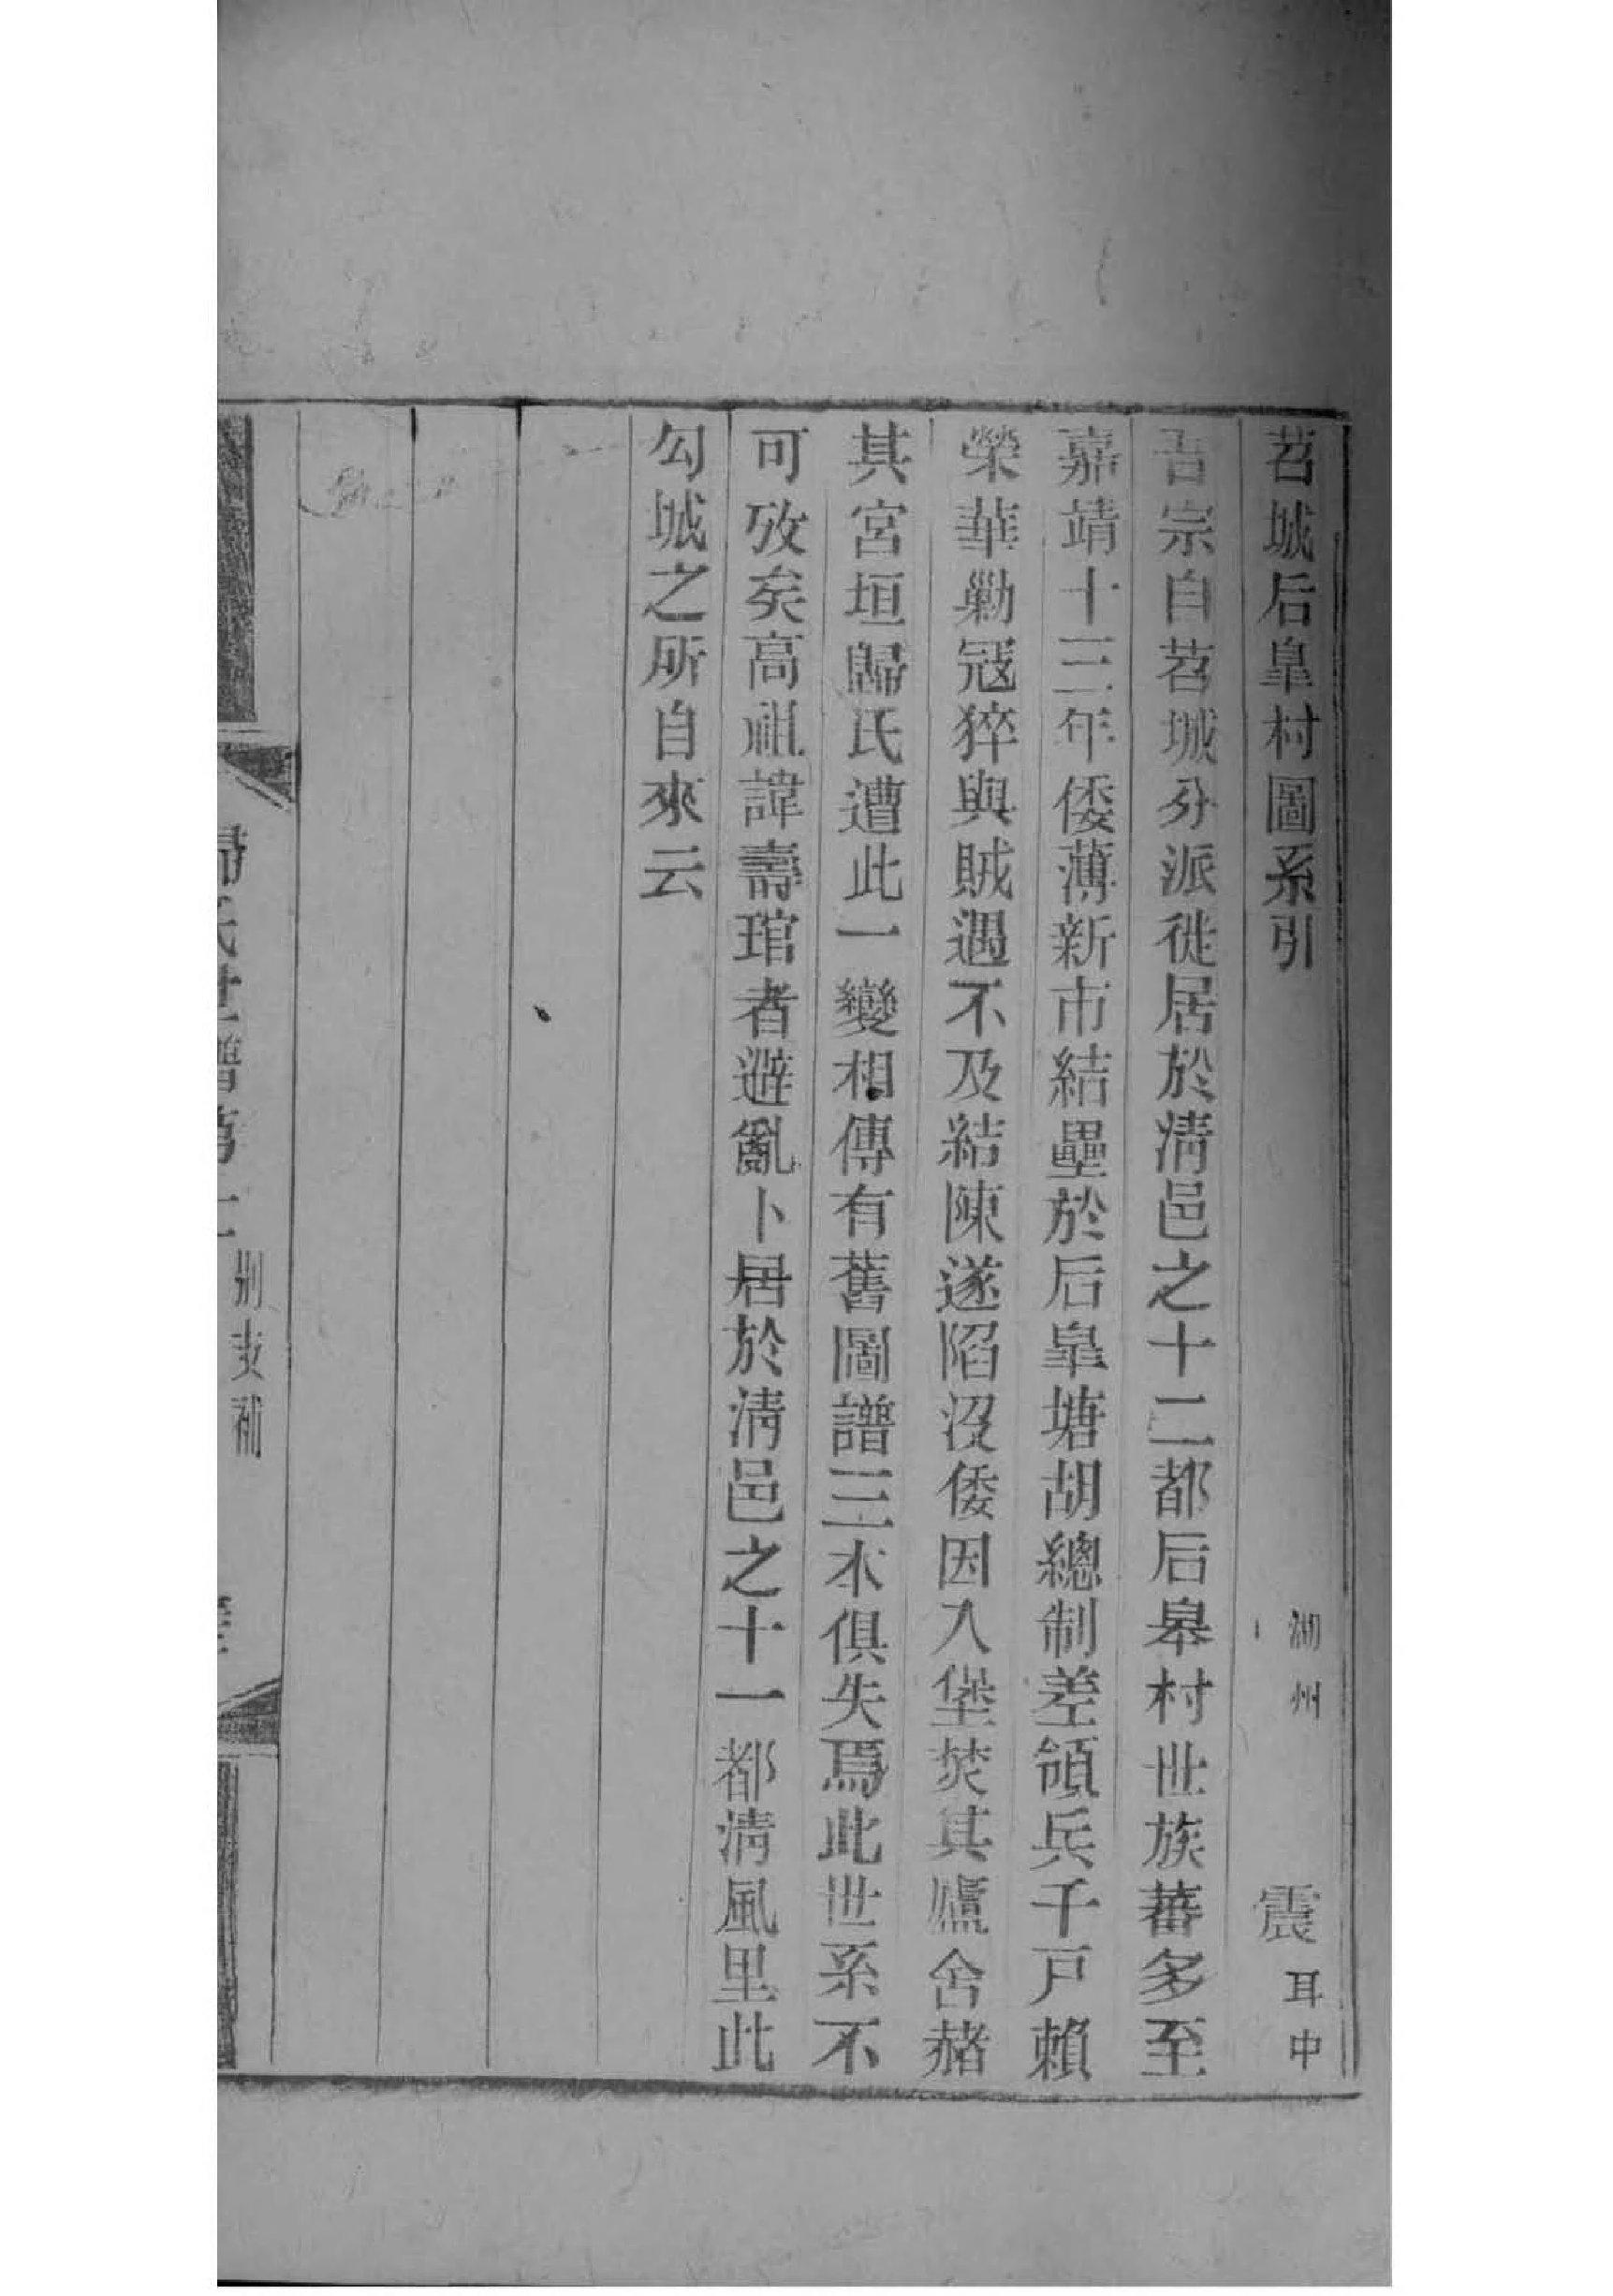 苕城后皐村圖系引 湖州 震 耳中
吾宗自苕城分派徙居於淸邑之十二都后皋村世族蕃多至
嘉靖十三年倭薄新市結壘於后皐塘胡總制差領兵千戸賴
榮華勦冦猝與賊遇不及結陳遂陷沒倭因入堡焚其廬舍赭
其宮垣歸氏遭此一變相傳有舊圖譜三本俱失焉此世系不
可攷矣高祖諱壽琯者避亂卜居於淸邑之十一都淸風里此
勾城之所自來云
歸氏世譜
別支補